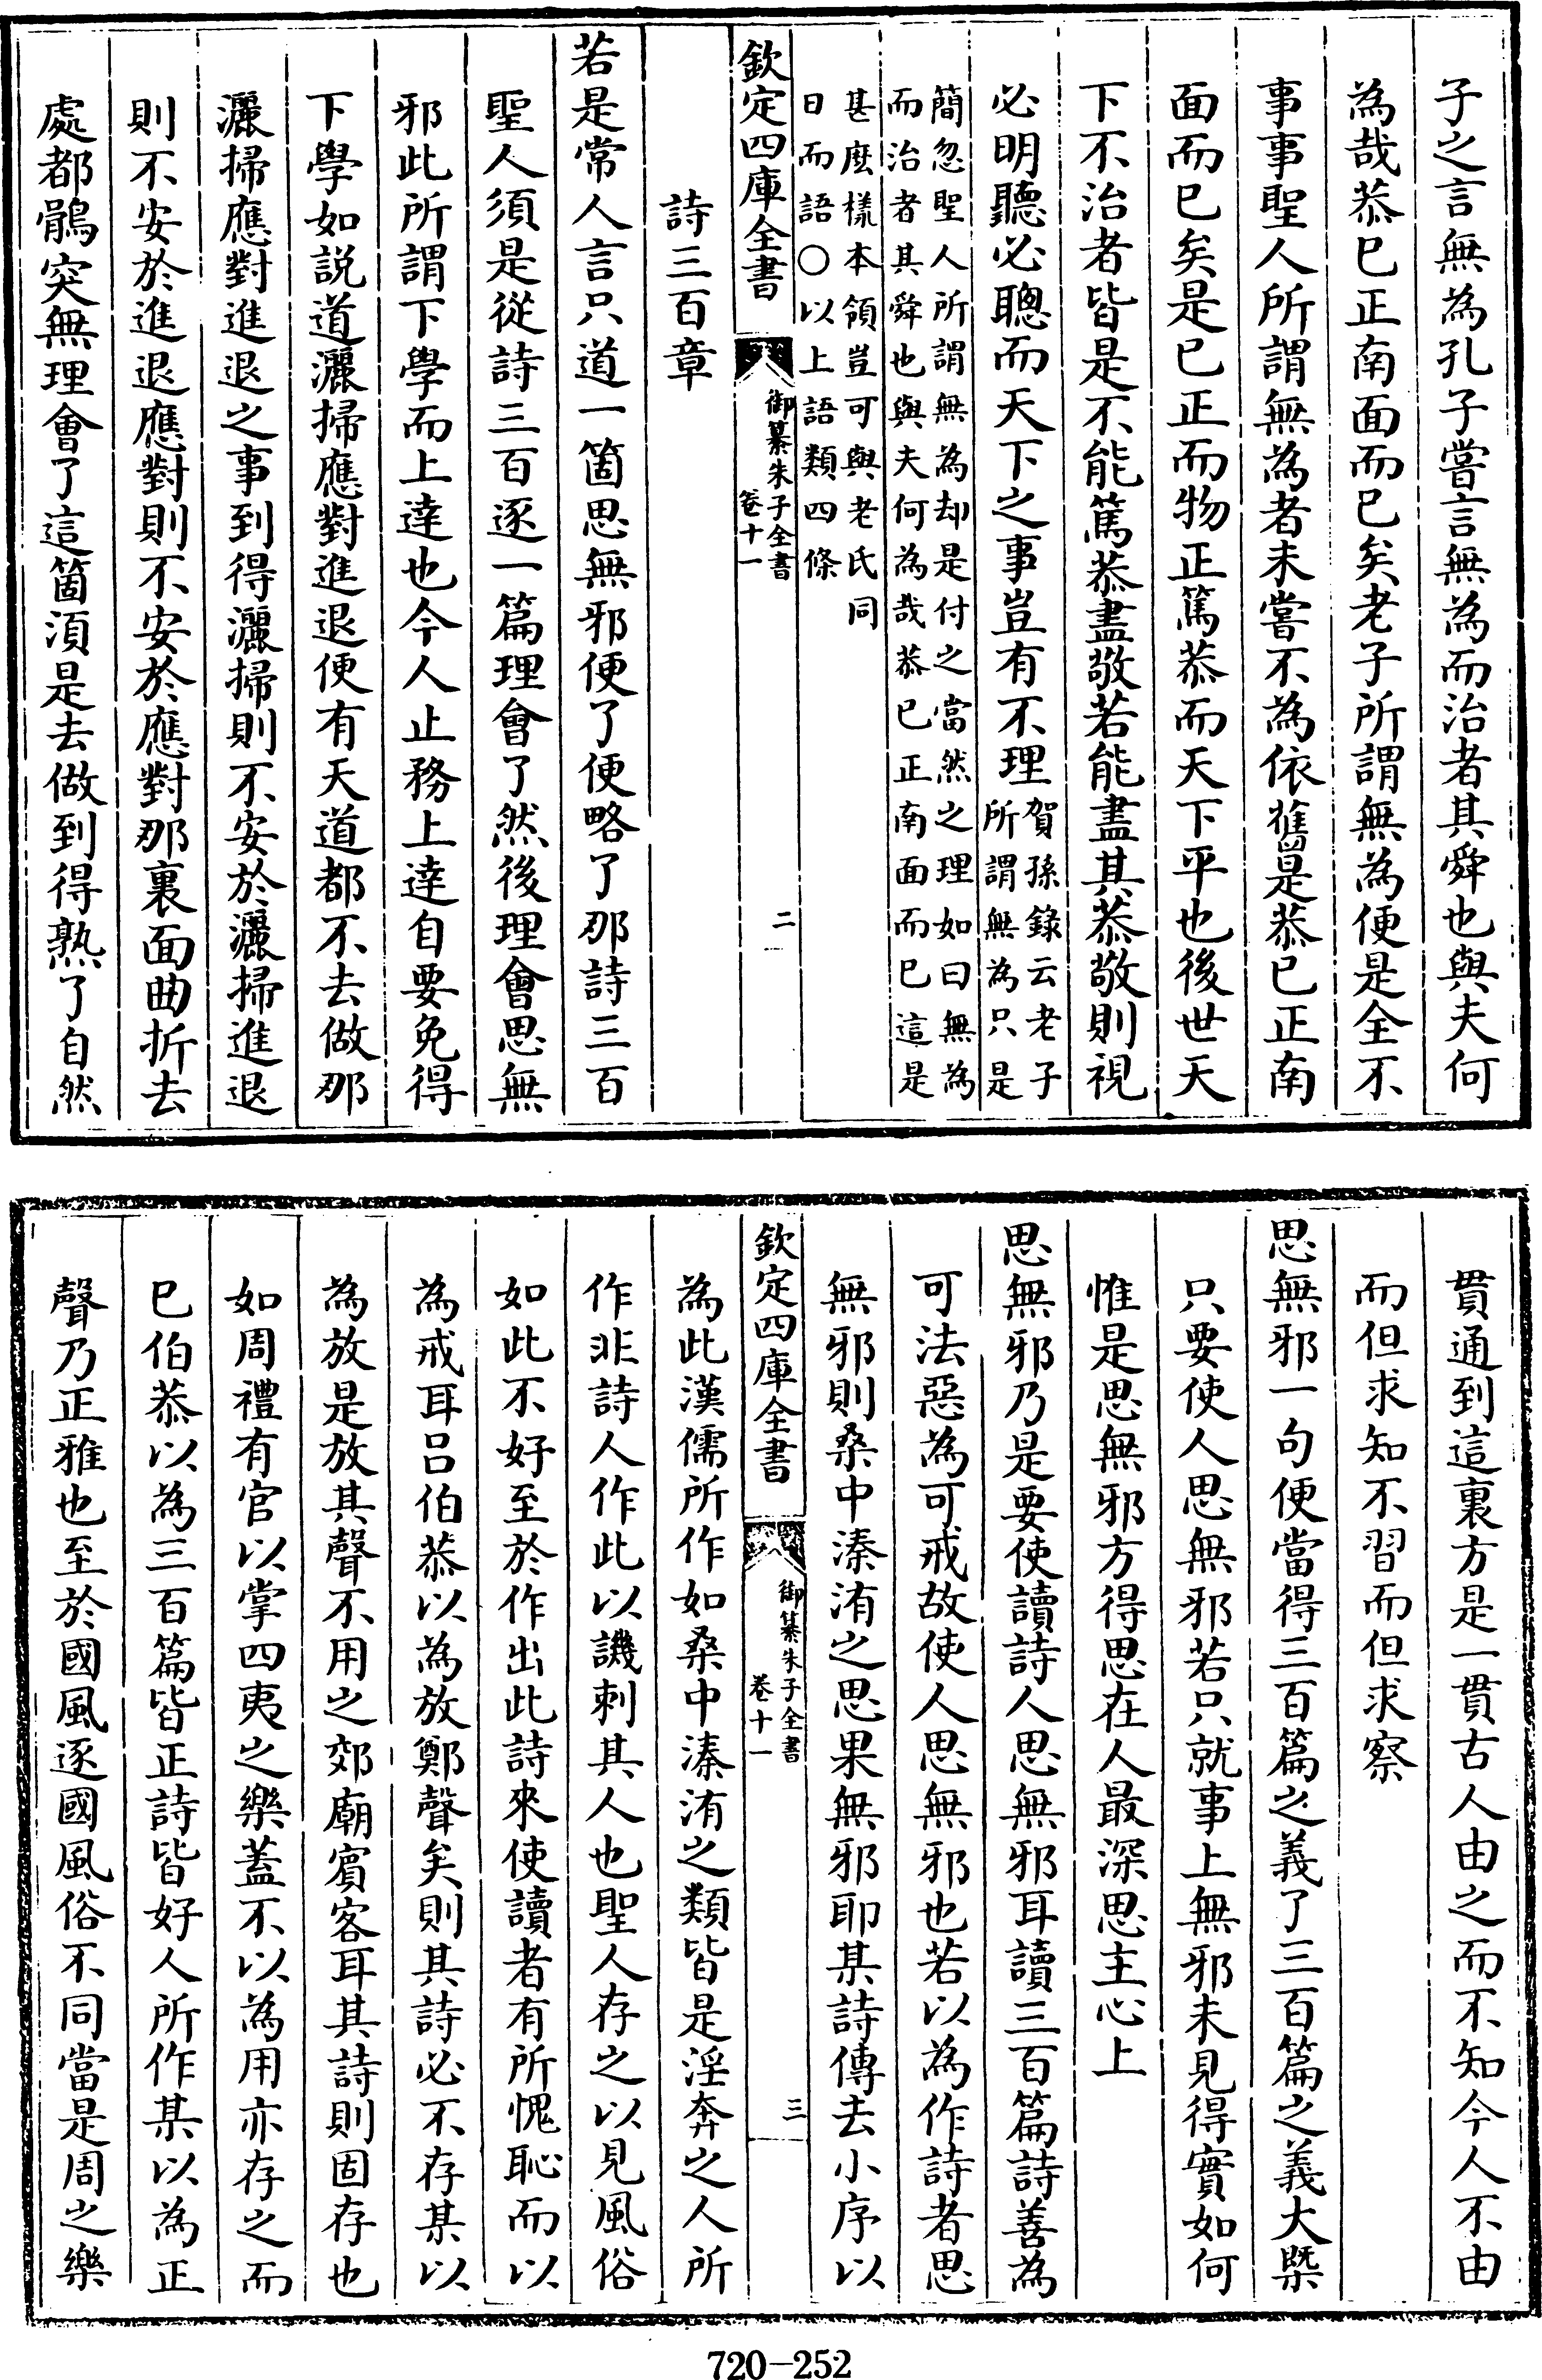 子之言無為孔子嘗言無為而治者其舜也與夫何
為哉恭已正南面而已矣老子所謂無為便是全不
事事聖人所謂無為者未嘗不為依舊是恭已正南
面而已矣是已正而物正篤恭而天下平也後世天
下不治者皆是不能篤恭盡敬若能盡其恭敬則視
必明聽必聰而天下之事豈有不理賀孫錄云老子
所謂無為只是
簡忽聖人所謂無為却是付之當然之理如曰無為
而治者其舜也與夫何為哉恭已正南面而已這是
甚麽樣本領豈可與老氏同
日而語〇以上語類四條
欽定四庫全書
御纂朱子全書
卷十一
二
詩三百章
若是常人言只道一箇思無邪便了便略了那詩三百
聖人須是從詩三百逐一篇理會了然後理會思無
邪此所謂下學而上達也今人止務上達自要免得
下學如説道灑掃應對進退便有天道都不去做那
灑掃應對進退之事到得灑掃則不安於灑掃進退
則不安於進退應對則不安於應對那裏面曲折去
處都鶻突無理會了這箇須是去做到得熟了自然
貫通到這裏方是一貫古人由之而不知今人不由
而但求知不習而但求察
思無邪一句便當得三百篇之義了三百篇之義大槩
只要使人思無邪若只就事上無邪未見得實如何
惟是思無邪方得思在人最深思主心上
思無邪乃是要使讀詩人思無邪耳讀三百篇詩善為
可法惡為可戒故使人思無邪也若以為作詩者思
無邪則桑中溱洧之思果無邪耶某詩傳去小序以
欽定四庫全書
御纂朱子全書
卷十一
三
為此漢儒所作如桑中溱洧之類皆是淫奔之人所
作非詩人作此以譏刺其人也聖人存之以見風俗
如此不好至於作出此詩來使讀者有所愧恥而以
為戒耳呂伯恭以為放鄭聲矣則其詩必不存某以
為放是放其聲不用之郊廟賓客耳其詩則固存也
如周禮有官以掌四夷之樂蓋不以為用亦存之而
已伯恭以為三百篇皆正詩皆好人所作某以為正
聲乃正雅也至於國風逐國風俗不同當是周之樂
720-252